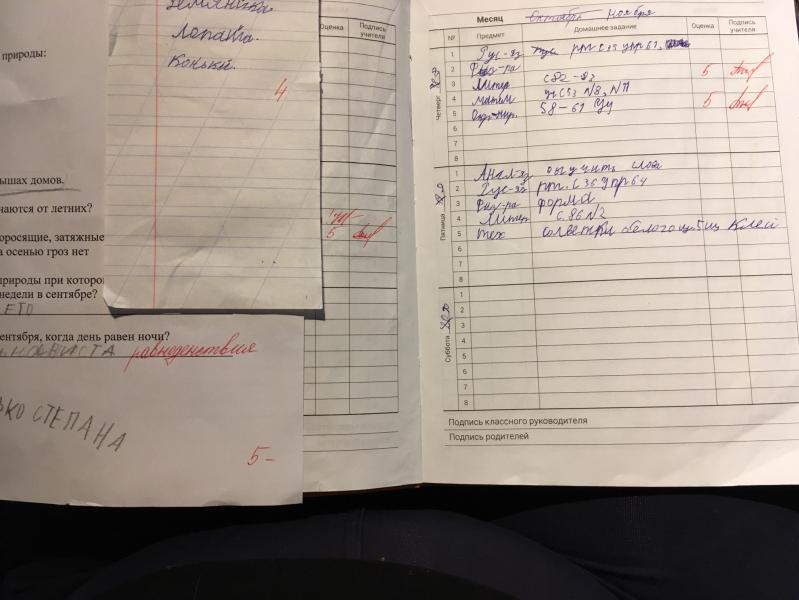 природы:
ышах домов.
чаются от летних?
оросящие, затяжные
а осенью гроз нет
природы при которо
недели в сентябре?
ЕТО
ентября, когда день равен ночи?
равноденствия
КО СТЕПАНА
5-
Земляника.
Лопата.
Коньки.
4
Оценка Подпись учителя
5
Месяц ноября
№ Предмет Домашнее задание Оценка Подпись учителя
Четверг
1 Рус-яз рт с 35 упр 61,
2 Физ-ра
3 Литер с 82-83 5
4 матем уч с 53 N8, N11
5 58-61 5
6
7
8
Пятница
1 Англ-яз выучить слова
2 Рус-яз рт. с 36 упр 64
3 Физ-ра форма
4 Литер с. 86 N2
5 тех салфетки белого ц. 5 ш Клей
6
7
8
Суббота
1
2
3
4
5
6
7
8
Подпись классного руководителя
Подпись родителей